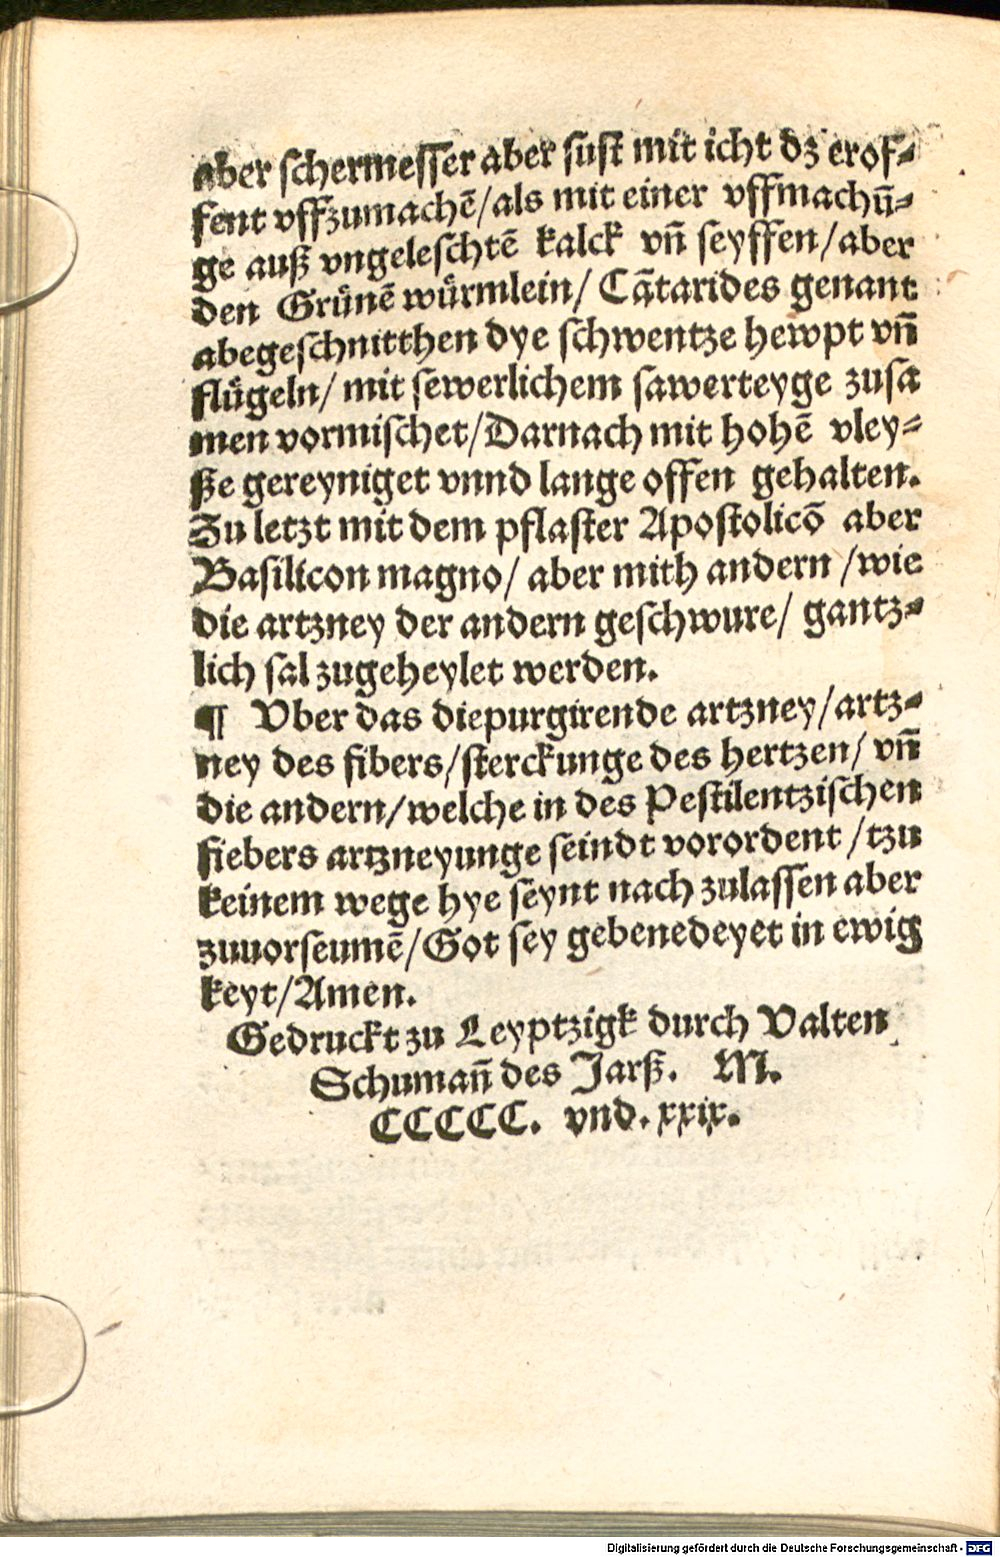 aber schermesser aber sust mit icht dz erof⸗
fent vffzumachē/als mit einer vffmachū⸗
ge auß vngeleschtē kalck vn̄ seyffen/aber
den Grünē würmlein/ Cātarides genant
abegeschnitthen dye schwentze hewpt vn̄
flügeln/ mit sewerlichem sawerteyge zusa
men vormischet/Darnach mit hohē vley⸗
ße gereyniget vnnd lange offen gehalten.
Zu letzt mit dem pflaster Apostolicō aber
Basilicon magno/ aber mith andern /wie
die artzney der andern geschwure/ gantz⸗
lich sal zugeheylet werden.
¶ Vber das diepurgirende artzney/artz⸗
ney des fibers/sterckunge des hertzen/ vn̄
die andern/welche in des Pestilentzischen
fiebers artzneyunge seindt vorordent /tzu
keinem wege hye seynt nach zulassen aber
zuuorseumē/Got sey gebenedeyet in ewig
keyt/Amen.
Gedruckt zu Leyptzigk durch Valten
Schuman̄ des Jarß. M.
CCCCC. vnd. xxix.
Digitalisierung gefördert durch die Deutsche Forschungsgemeinschaft - DFG